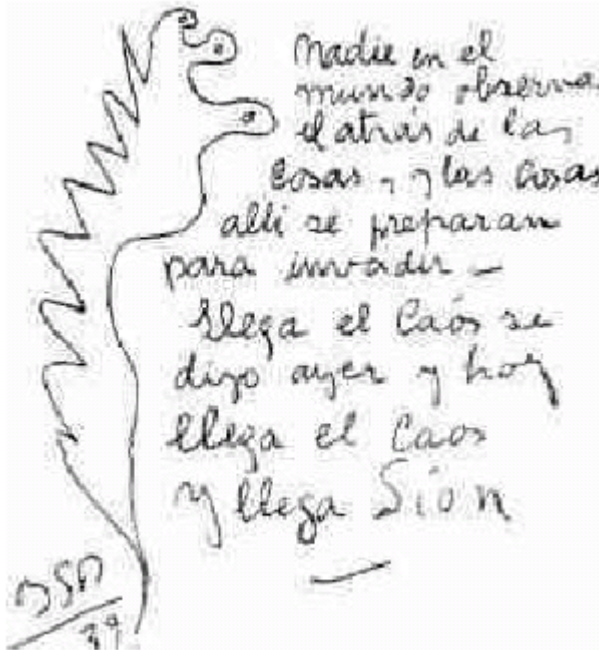 Nadie en el
mundo observa
el atrás de las
cosas, y las cosas
alli se preparan
para invadir —
llega el Caós se
dijo ayer y hoy
llega el Caos
y llega Sion
BSP
39